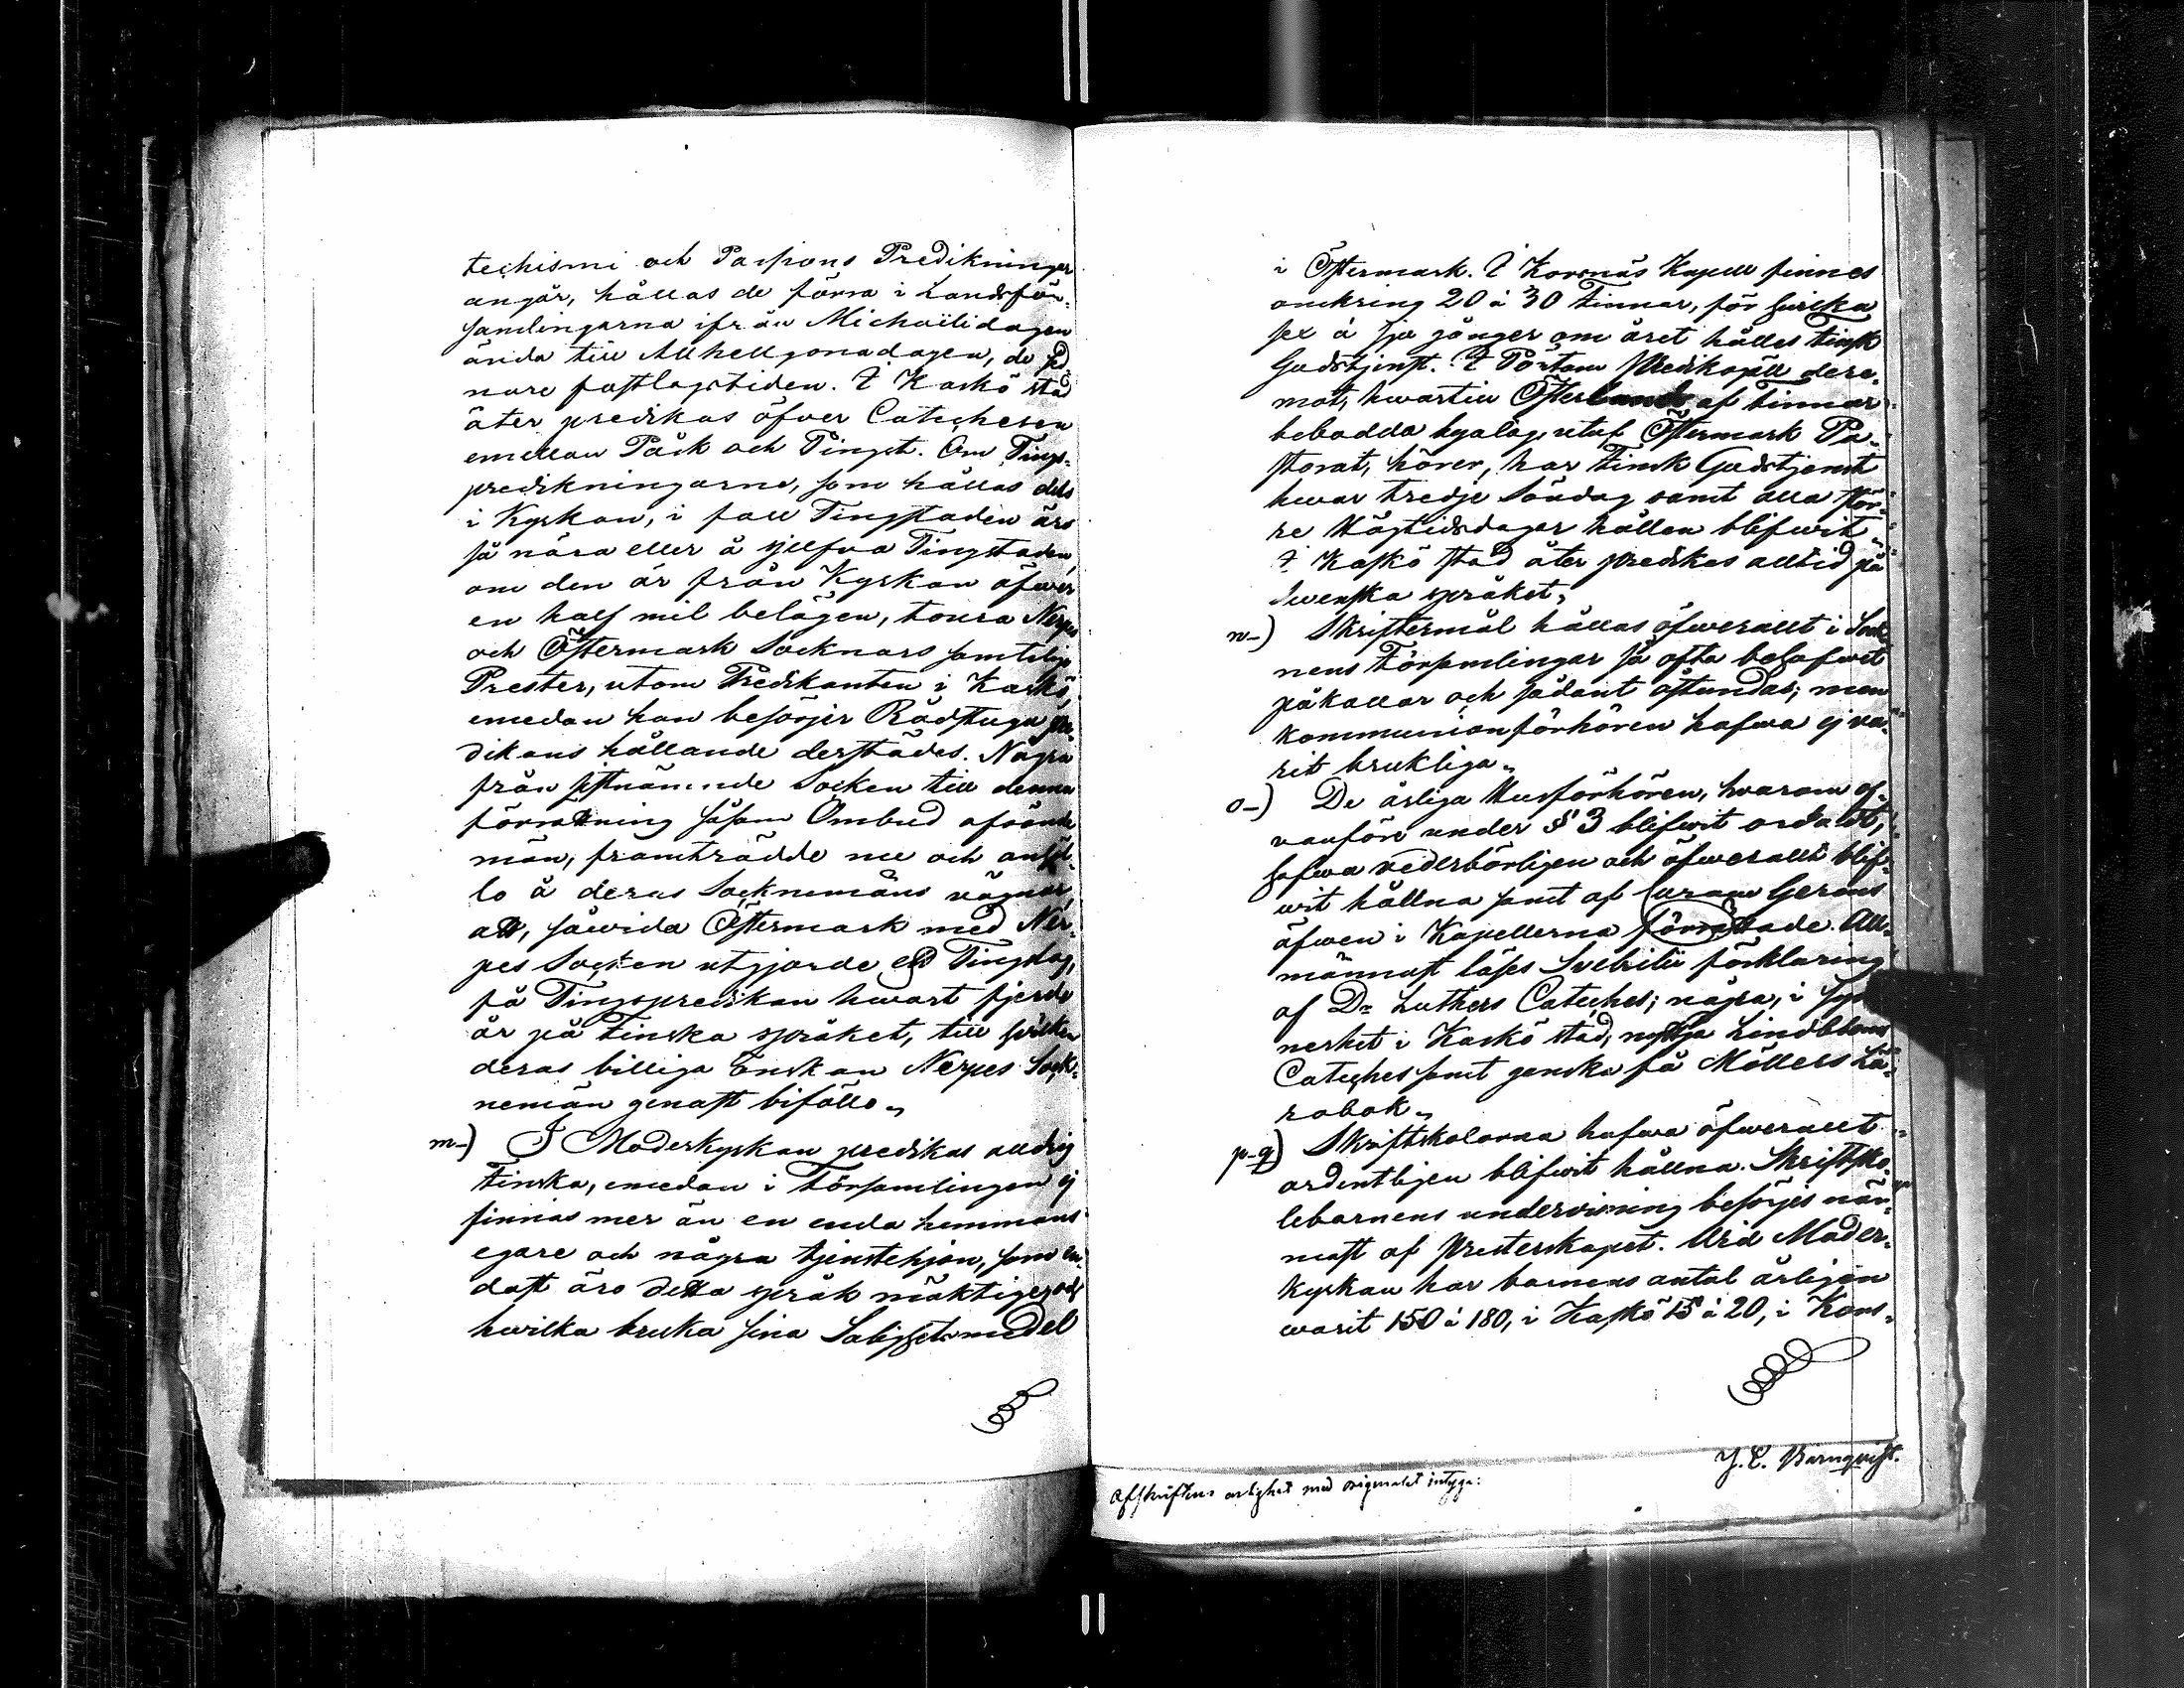 techismi och Passions Predikningar
angår, hållas de förra i Landsför-
samlingarna ifrån Michaëlidagen
ända till Allhelgonadagen, de sed-
nare fastlagstiden. I Kaskö stad
åter predikas öfver Catechesen
emellan Påsk och Pingst. Om Tings-
predikningarne, som hållas dels
i Kyrkan, i fall Tingstaden är
så nära eller å sjelfva Tingstaden,
om den är från Kyrkan öfwer
en half mil belägen, toura Nerpes
och Östermark Socknars samtelige
Prester, utom Predikanten i Kaskö,
emedan han besörjer Rådstugu pre-
dikans hållande derstädes. Några
från sistnämnde Socken till denna
förrättning såsom Ombud afsände
män, framträdde nu och anhöl-
lo å deras Socknemäns vägnar,
att, såwida Östermark med Ner-
pes Socken utgjorde ett Tingslag,
få Tingspredikan hwart fjerde
år på Finska språket, till hwilken
deras billiga önskan Nerpes Sock-
nemän genast biföllo.
m-) I Moderkyrkan predikas aldrig
Finska, emedan i Församlingen ej
finnas mer än en enda hemmans
egare och några tjenstehjon, som en-
dast äro detta språk mäktige, och
hwilka bruka sina Salighetsmedel
i Östermark. I Korsnäs Kapell finnes
omkring 20 à 30 Finnar, för hwilka
sex à sju gånger om året hålles Finsk
Gudstjenst. I Pörtom Predikopäll dere-
mot, hwartill Öfter af Finnar
bebodda byalag, utaf Östermark Pa-
storat, hörer, har Finsk Gudstjenst
hwar tredje Söndag samt alla stör-
re Högtidsdagar hållen blifwit.
I Kaskö stad åter predikas alltid på
Swenska språket.
n-) Skriftermål hållas öfwerallt i Sock-
nens Församlingar så ofta behofwet
påkallar och sådant åstundas; men
kommunionförhören hafwa ej va-
rit brukliga.
o-) De årliga Husförhören, hvarom of-
vanföre under § 3 blifwit ordadt,
hafwa vederbörligen och öfwerallt blif-
wit hållna samt af Herens
äfwen i Kapellerna förrättade. All-
männast läses Svebilii förklaring
af Dr Luthers Cateches; några, i syn-
nerhet i Kaskö stad, nyttja Lindbloms
Cateches samt ganska få Möllers Lä-
robok.
p-q) Skriftskolorna hafwa öfwerallt
ordentligen blifwit hållna. Skriftsko-
lebarnens undervisning besörjes när-
mast af Presterskapet. Wid Moder-
kyrkan har barnens antal årligen
warit 150 à 180, i Kaskö 15 à 20, i Kors-
J. E. Barnqvist.
Afskriftens ärlighet med originalet intyga: